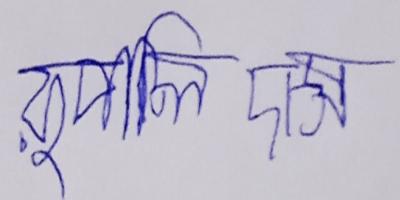 রুপালি দাস